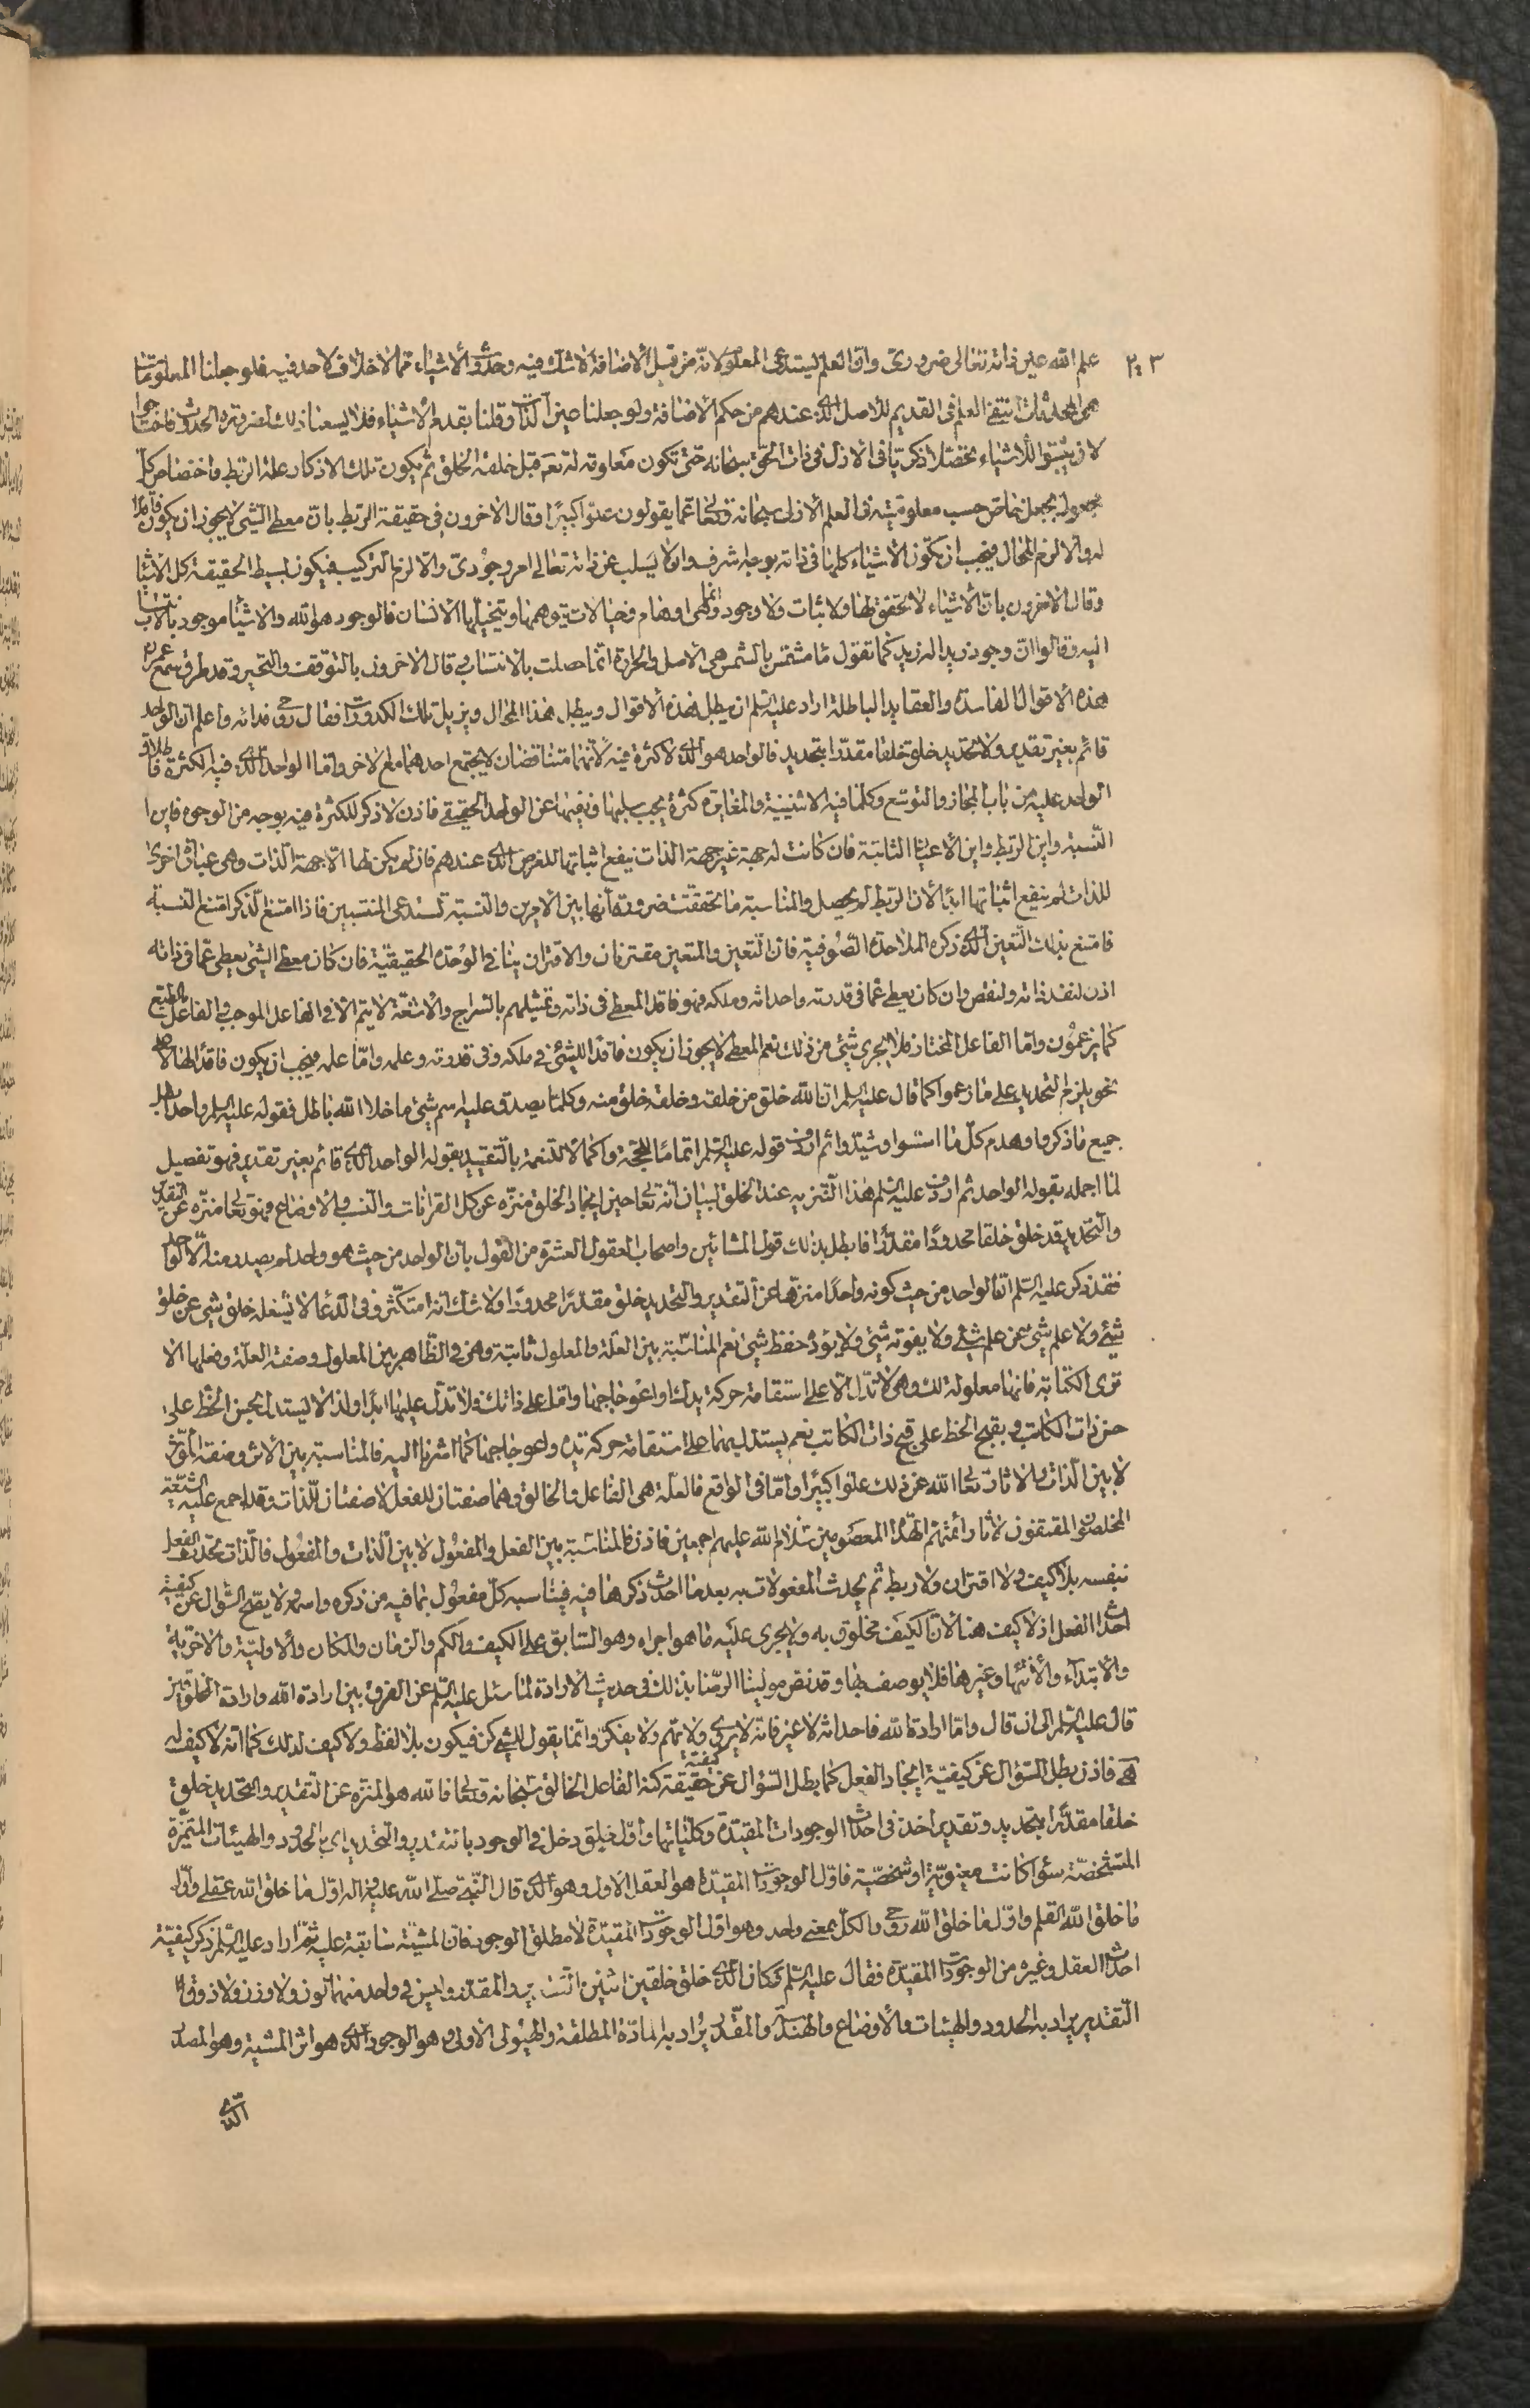 ٢٠٣
علم الله عين ذاته تعالى ضروري وان العلم يستدعي المعلوم لانه من قبيل الاضافة لا شك فيه وحدوث الاشياء مما لا خلاف لاحد فيه فلو جعلنا المعلومات
هي المحدثات انتفى العلم في القديم للاصل الذي عندهم من حكم الاضافة ولو جعلنا عين الذات وقلنا بقدم الاشياء فلا يسعنا ذلك لضرورة الحدوث فاحتاجوا
لان يثبتوا للاشياء تحصلا ذكريا في الازل في ذات الحق سبحانه حتى تكون معلومة له تعم قبل خلقه الخلق ثم يكون تلك الاذكار علة الربط واختصاص كل
مجعول بجعل خاص حسب معلوميته في العلم الازلي سبحانه وتعالى عما يقولون علوا كبيرا وقال الاخرون في حقيقة الربط بان معطي الشئ لا يجوز ان يكون فاقدا
له والا لزم المحال فيجب ان تكون الاشياء كلها في ذاته بوجه اشرف وان لا يسلب عن ذاته تعالى امر وجودي والا لزم التركيب فيكون بسيط الحقيقة كل الاشياء
وقال الاخرون بان الاشياء لا تحقق لها ولا ثبات ولا وجود وانما هي اوهام وخيالات يتوهمها ويتخيلها الانسان فالوجود هو الله والاشياء موجود بالانتساب
اليه وقالوا ان وجود زيد اله زيد كما تقول ماء مشمس بالشمس هي الاصل والحرارة انما حصلت بالانتساب وقال الاخرون بالتوقف والتحير وقد طرق سمع عمران
هذه الاقوال الفاسدة والعقايد الباطلة اراد عليه السلم ان يبطل هذه الاقوال ويبطل هذا المحال ويزيل تلك الكدورات فقال روحي فداه واعلم ان الواحد
قائم بغير تقدير ولا تحديد خلق خلقا مقدرا بتحديد فالواحد هو الذي لا كثرة فيه لانهما متناقضان لا يجتمع احدهما مع الاخر واما الواحد الذي فيه الكثرة فاطلاق
الواحد عليه من باب المجاز والتوسع وكلما فيه الاثنينية والمغايرة كثرة يجب سلبها ونفيها عن الواحد الحقيقي فاذن لا ذكر للكثرة فيه بوجه من الوجوه فاين ا
النسبة واين الربط واين الاعيان الثابتة فان كانت له جهة غير جهة الذات ينفع اثباتها للغرض الذي عندهم فاذ لم يكن لها الا جهة الذات وهي عبارة اخرى
للذات لم ينفع اثباتها ابدا لان الربط لم يحصل والمناسبة ما تحققت ضرورة انها بين الامرين والنسبة تستدعي المنتسبين فاذا امتنع الذكر امتنع النسبة
فامتنع بذلك التعين الذي ذكره الملاحدة الصوفية فان التعين والمتعين مقترنان والاقتران ينافي الوحدة الحقيقية فان كان معطي الشئ يعطي عما في ذاته
اذن لنفد ذاته ولنقص وان كان يعطي عما في قدرته واحداثه وملكه فهو فاقد المعطي في ذاته وتمثيلهم بالسراج والاشعة لا يتم الا في الفاعل الموجب والفاعل بالطبع
كما يزعمون واما الفاعل المختار فلا يجري شئ من ذلك نعم المعطي لا يجوز ان يكون فاقدا للشئ في ملكه وفي قدرته وعلمه واما علمه فيجب ان يكون فاقدا لها والا
نحو يلزم التحديد على ما زعموا كما قال عليه السلم ان الله خلو من خلقه وخلقه خلو منه وكلما يصدق عليه اسم شئ ما خلا الله باطل فقوله عليه السلم واحدا بطل
جميع ما ذكروا وهدم كل ما اسسوا وشيدوا ثم اردف قوله عليه السلم اتماما للحجة واكمالا للنعمة بالتقييد بقوله الواحد الذي قائم بغير تقدير فهو تفصيل
لما اجمله بقوله الواحد ثم اردف عليه السلم هذا التنزيه عند الخلق لبيان انه تعالى حين ايجاد الخلق منزه عن كل القرانات والنسب والاوضاع فهو تعالى منزه عن التقدير
والتحديد قد خلق خلقا محدودا مقدرا فابطل بذلك قول المشائين واصحاب العقول العشرة من القول بان الواحد من حيث هو واحد لم يصدر منه الا الواحد
فقد ذكر عليه السلم ان الواحد من حيث كونه واحدا منزها عن التقدير والتحديد خلق مقدرا محدودا ولا شك انه امتكثر وفي الدعا لا يشغله خلق شئ عن خلق
شئ ولا علم شئ عن علم شئ ولا يفوته شئ ولا يؤده حفظ شئ نعم المناسبة بين العلة والمعلول ثابتة وهي في الظاهر بين المعلول وصفة العلة وفعلها الا
ترى الكتابة فانها معلولة لك وهي لا تدل الا على استقامة حركة يدك او اعوجاجها واما على ذاتك فلا تدل عليها ابدا ولذا لا يستدل بحسن الخط على
حسن ذات الكاتب وبقبح الخط على قبح ذات الكاتب نعم يستدل بهما على استقامة حركة يده واعوجاجها كما اشرنا اليه فالمناسبة بين الاثر وصفة المؤثر
لا بين الذات والاثار تعالى الله عن ذلك علوا كبيرا واما في الواقع فالعلة هي الفاعل والخالق وهما صفتان للفعل لا صفتان للذات وقد اجمع عليه الشيعة
المخلصون المقتفون لاثار ائمتهم الهداة المعصومين سلام الله عليهم اجمعين فاذن فالمناسبة بين الفعل والمفعول لا بين الذات والمفعول فالذات تحدث الفعل
بنفسه بلا كيف ولا اقتران ولا ربط ثم يحدث المفعولات به بعد ما احدث ذكرها فيه فيناسبه كل مفعول بما فيه من ذكره واسمه ولا يقبح السؤال عن كيفية
احداث الفعل اذ لا كيف هنا لان الكيف مخلوق به ولا يجري عليه ما هو اجراه وهو السابق على الكيف والكم والزمان والمكان والاولية والاخروية
والابتداء والانتهاء وغيرها فلا يوصف بها وقد نص مولينا الرضا بذلك في حديث الارادة لما سئل عليه السلم عن الفرق بين ارادة الله وارادة الخلق
قال عليه السلم الى ان قال واما ارادة الله فاحداثه لا غير فانه لا يروي ولا يهم ولا يفكر وانما يقول للشئ كن فيكون بلا لفظ ولا كيف لذلك كما انه لا كيف له
فاذن بطل السؤال عن كيفية ايجاد الفعل كما بطل السؤال عن كيفية حقيقة كنه الفاعل الخالق سبحانه وتعالى فالله هو المنزه عن التقدير والتحديد خلق
خلقا مقدرا بتحديد وتقدير اخذ في احداث الوجودات المقيدة وكلياتها واول خلق دخل في الوجود بالتقدير والتحديد اي بالحدود والهيئات المتميزة
المتشخصة سواء كانت معنوية او شخصية فاول الوجودات المقيدة هو العقل الاول وهو الذي قال النبي صلى الله عليه واله اول ما خلق الله عقلي واول
ما خلق الله القلم واول ما خلق الله روحي والكل بمعنى واحد وهو اول الوجودات المقيدة لا مطلق الوجود فان المشية سابقة عليه ثم اراد عليه السلم ذكر كيفية
احداث العقل وغيره من الوجودات المقيدة فقال عليه السلم فكان الذي خلق خلقين اثنين التقدير والمقدر وليس في واحد منهما لون ولا وزن ولا ذوق
التقدير يراد به الحدود والهيئات والاوضاع والهندسة والمقدر يراد به المادة المطلقة والهيولى الاولى وهو الوجود الذي هو اثر المشية وهو المصدر
الذي